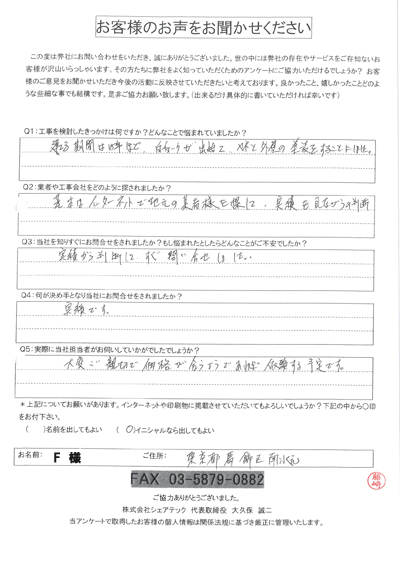 お客様のお声をお聞かせください
この度は弊社にお問い合わせをいただき、誠にありがとうございました。世の中には弊社の存在やサービスをご存知ないお
客様が沢山いらっしゃいます。その方たちに弊社をよく知っていただくためのアンケートにご協力いただけるでしょうか？ お客
様のご意見をお聞かせいただき今後の活動に反映させていただきたいと考えております。良かったこと、嬉しかったことどのよ
うな些細な事でも結構です。是非ご協力お願い致します。（出来るだけ具体的に書いていただければ幸いです）
Q1：工事を検討したきっかけは何ですか？どんなことで悩まれていましたか？
が出始て、外壁の塗装をすることにした。
Q2：業者や工事会社をどのように探されましたか？
インターネットで地元の業者様を探して、実績を見ながらの判断
Q3：当社を知りすぐにお問合せをされましたか？もし悩まれたとしたらどんなことがご不安でしたか？
実績から判断してすぐ問い合せました。
Q4：何が決め手となり当社にお問合せをされましたか？
実績です。
Q5：実際に当社担当者がお伺いしていかがでしたでしょうか？
大変ご親切で価格が合うようであれば依頼する予定です。
＊上記についてお願いがあります。インターネットや印刷物に掲載させていただいてもよろしいでしょうか？下記の中から〇印
をお付下さい。
（　　）名前を出してもよい　（〇）イニシャルなら出してもよい
お名前： F 様 ご住所： 東京都葛飾区
FAX 03-5879-0882
ご協力ありがとうございました。
株式会社シェアテック 代表取締役 大久保 誠二
当アンケートで取得したお客様の個人情報は関係法規に基づき厳正に管理いたします。